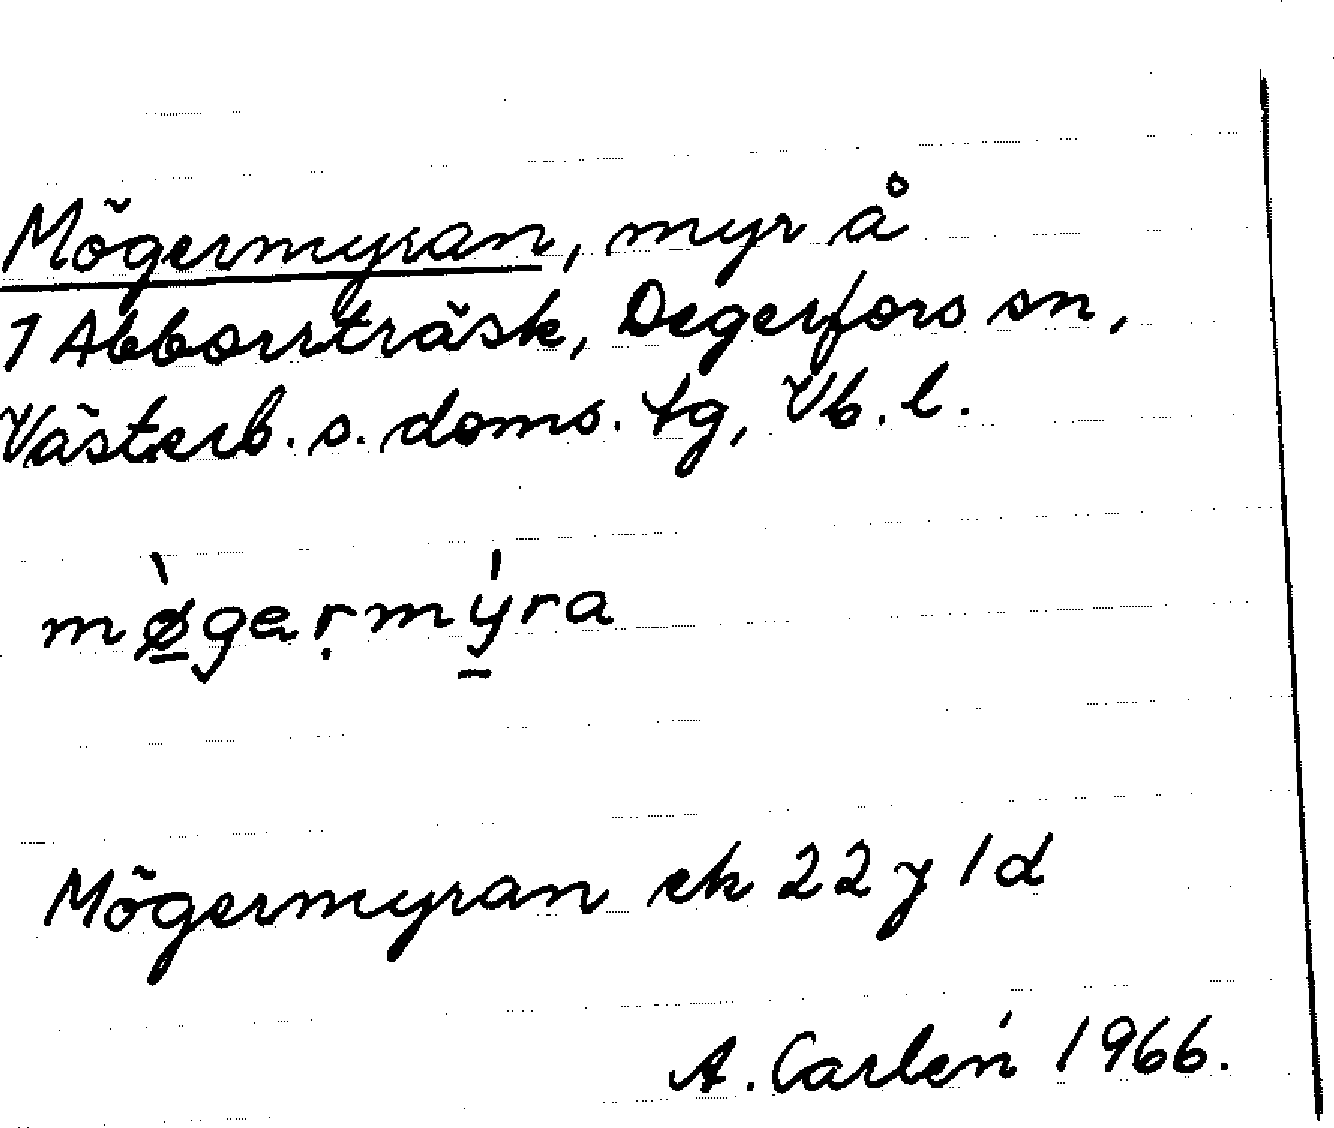 Mögermyran, myr å
1 Abborrträsk, Degerfors sn,
Västerb. s. doms. tg, Vb. l.
mø̠̀geṛmý̠ra
Mögermyran ek 22 y 1 d
A. Carlén 1966.